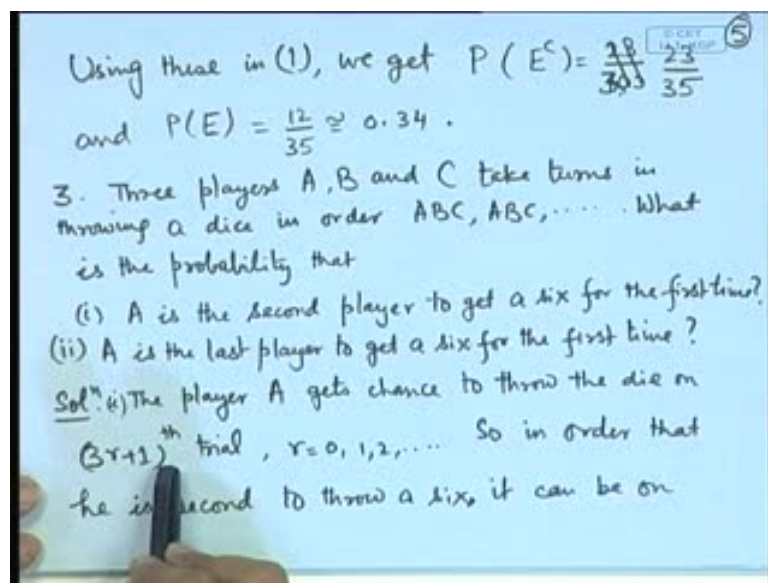 5
Using these in (1), we get P(Eᶜ) = 23/35
and P(E) = 12/35 ≅ 0.34 .
3. Three players A, B and C take turns in
throwing a dice in order ABC, ABC, ..... What
is the probability that
(i) A is the second player to get a six for the first time?
(ii) A is the last player to get a six for the first time?
Solⁿ: (i) The player A gets chance to throw the die on
(3r+1)ᵗʰ trial, r=0, 1, 2, .... So in order that
he is second to throw a six, it can be on